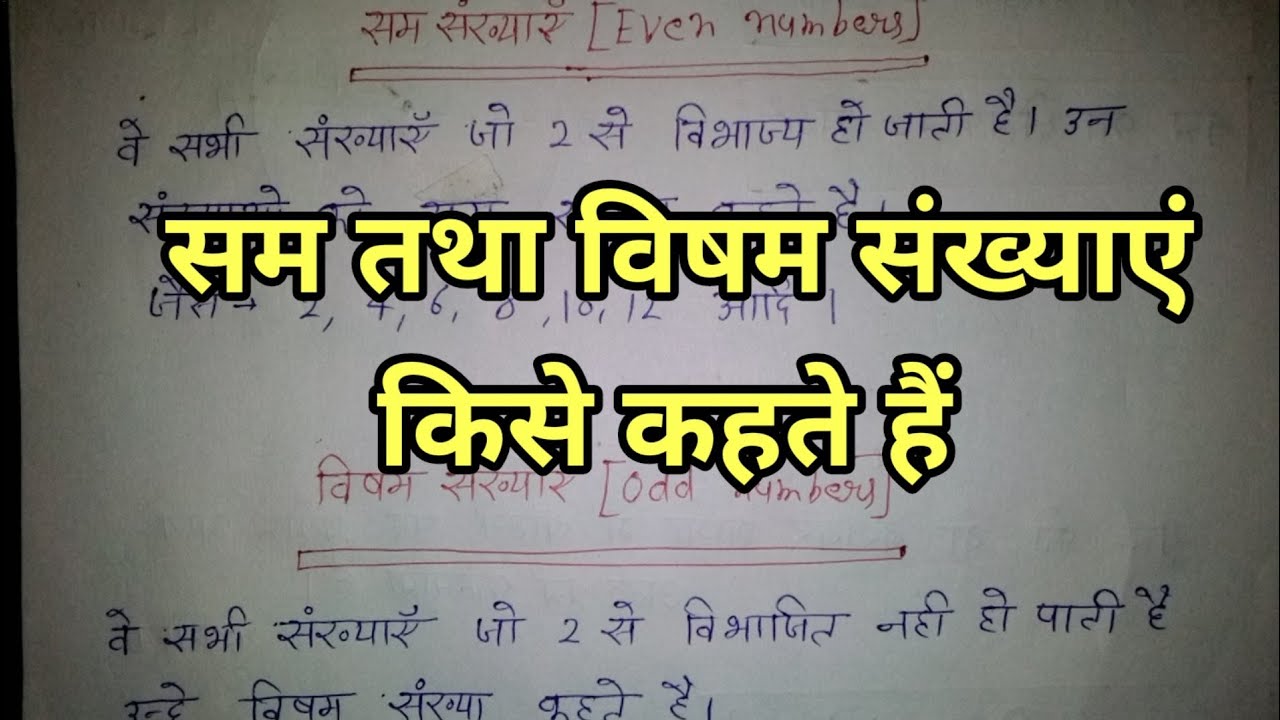 सम संख्याएँ [Even numbers]
वे सभी संख्याएँ जो 2 से विभाज्य हो जाती है। उन
सम तथा विषम संख्याएं
जैसे → 2, 4, 6, 8, 10, 12 आदि।
किसे कहते हैं
विषम संख्याएँ [Odd numbers]
वे सभी संख्याएँ जो 2 से विभाजित नही हो पाती है
उन्हे विषम संख्या कहते है।